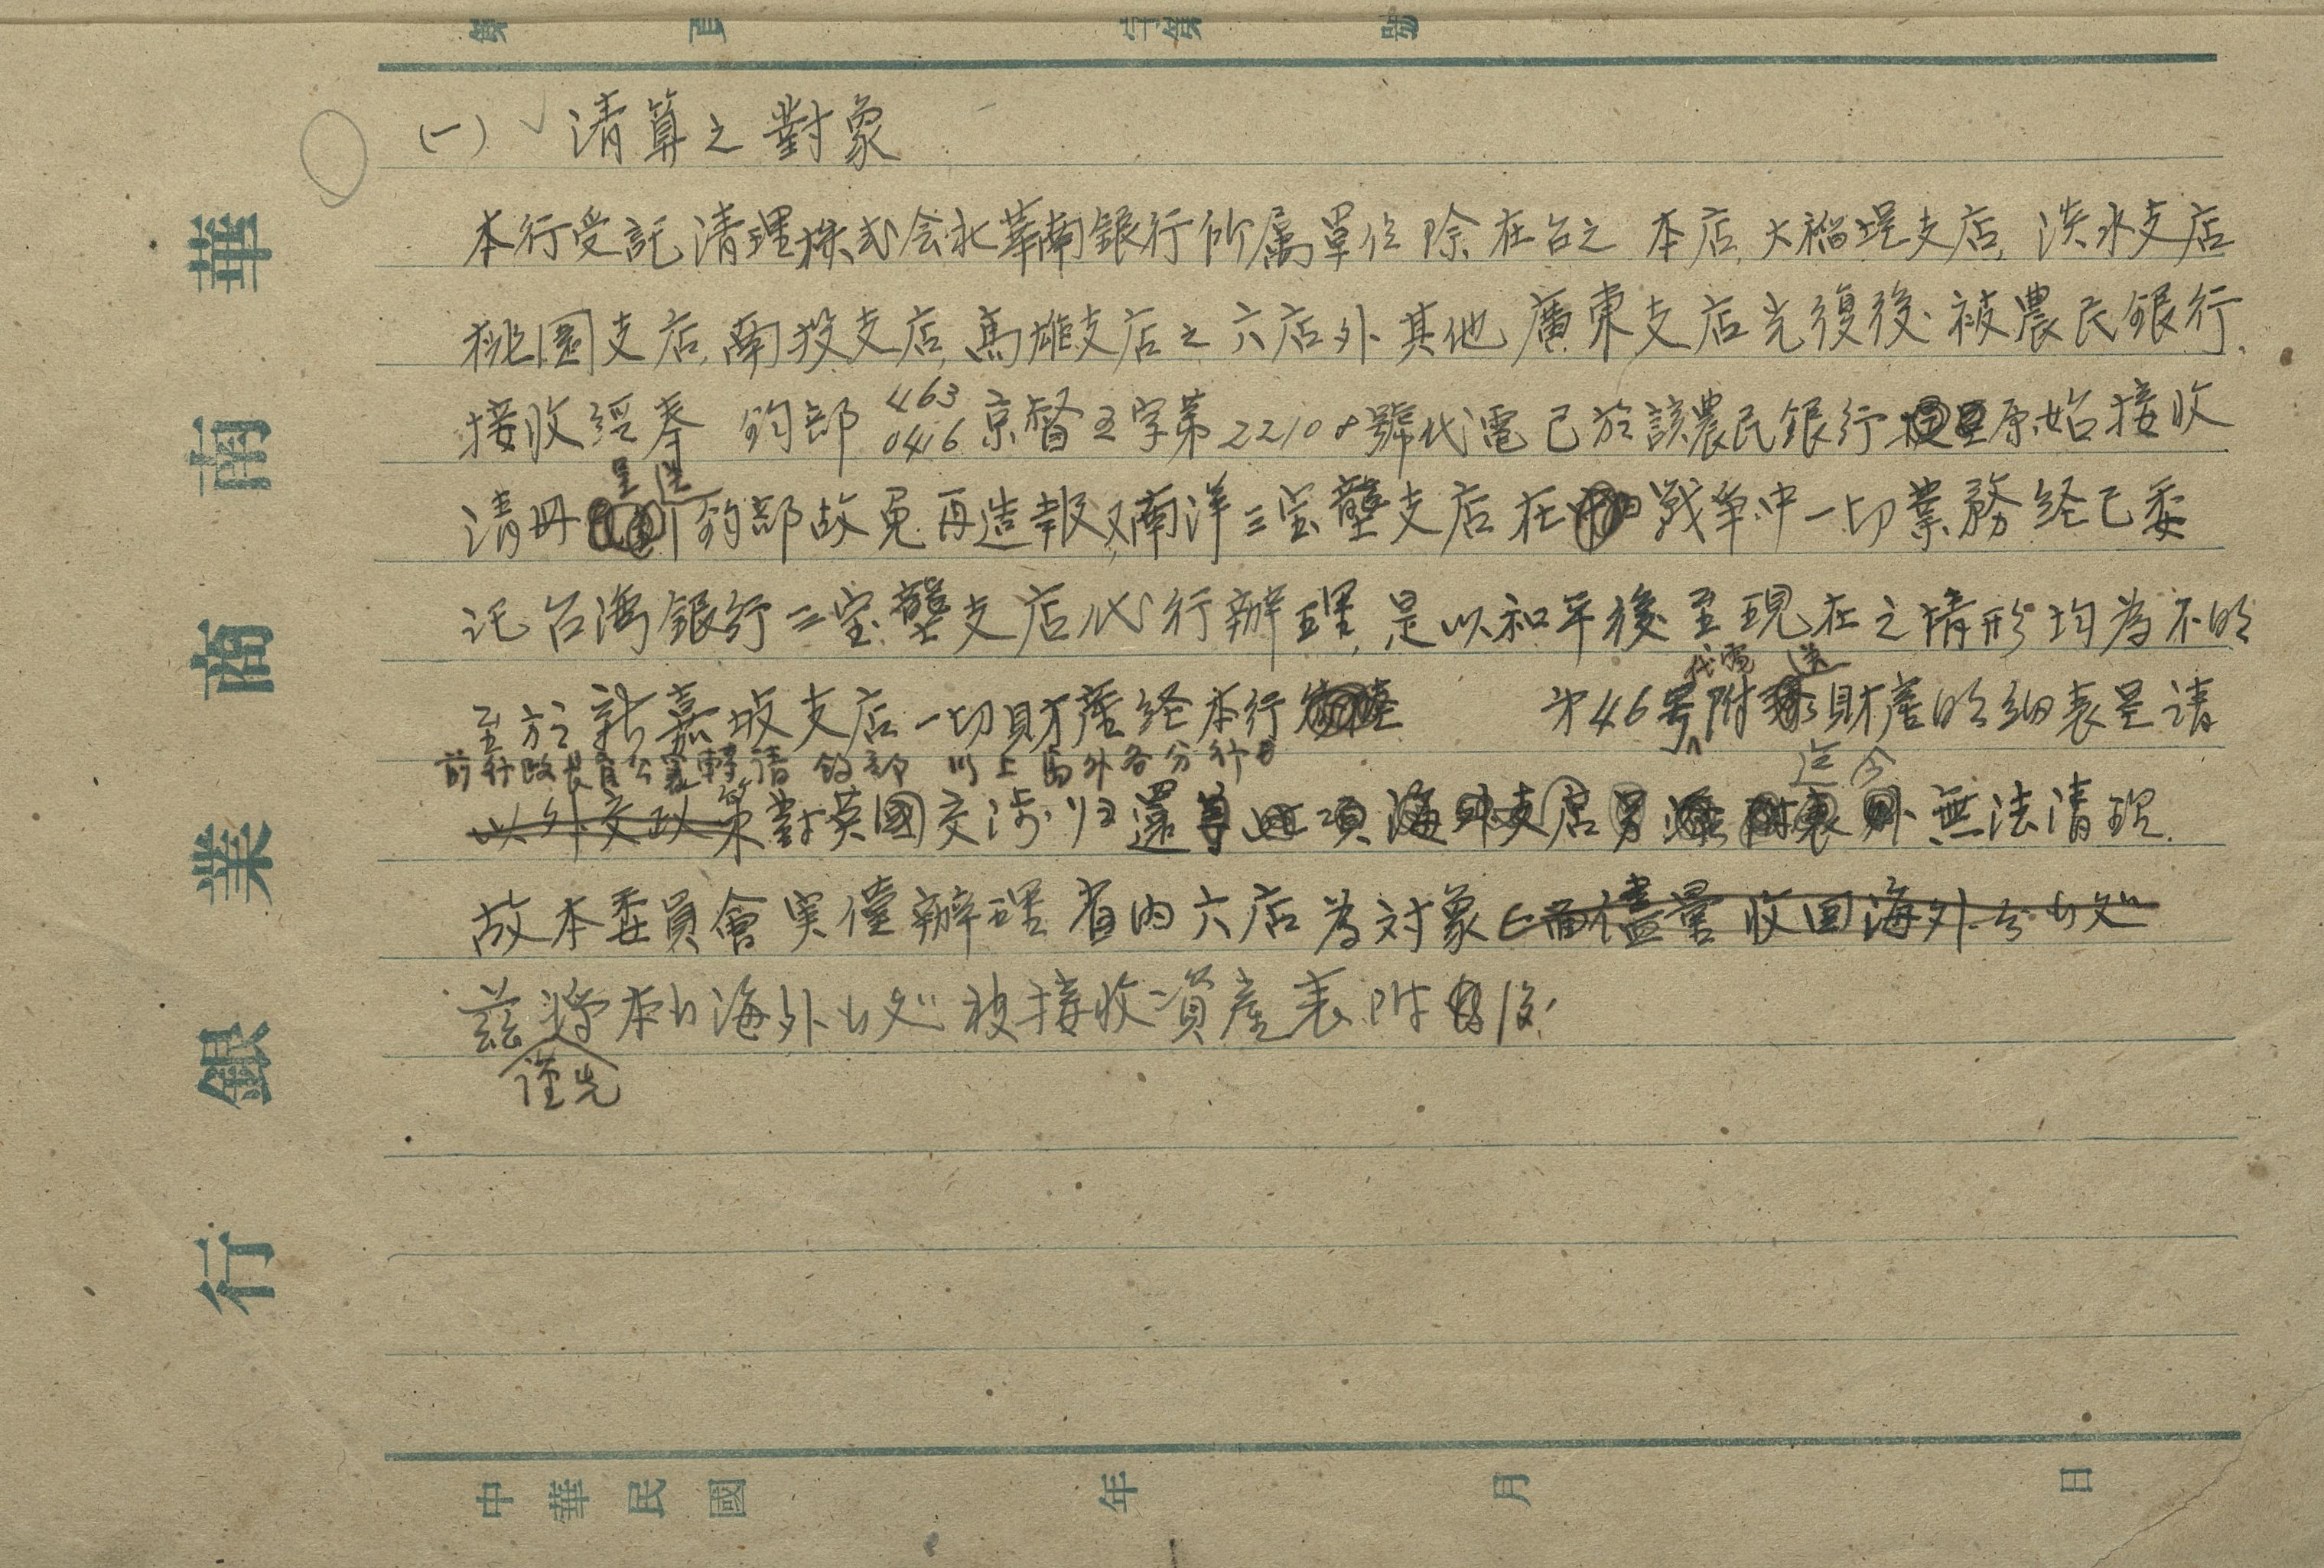 第 頁 字第 號
華南商業銀行
(一) 清算之對象
本行受託清理株式会社華南銀行所屬單位除在台之本店,大稻埕支店,淡水支店
桃園支店,南投支店,高雄支店之六店外其他廣東支店光復後被農民銀行
接收經奉 鈞部 463 0416 京督五字第22108號代電已於該農民銀行原始接收
呈送
清冊 鈞部故免再造報又南洋三宝壟支店在 戰争中一切業務経已委
託台湾銀行三宝壟支店代行辦理,是以和平後至現在之情形均為不明
代電 送
至於新嘉坡支店一切財產経本行 第46号附 財產明細表呈請
前行政長官公署轉請 鈞部 以上海外各分行
迄今
以外交政策對英國交涉归還 此項海外支店 無法清理.
故本委員會実僅辦理省内六店為対象 儘量收回海外
茲將本 海外 被接收資產表附後
謹先
中華民國 年 月 日